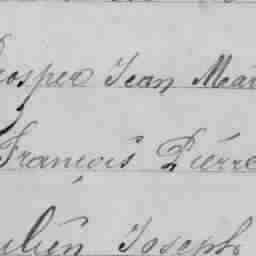 Prosper Jean Mar
François Pierre
Julien Joseph